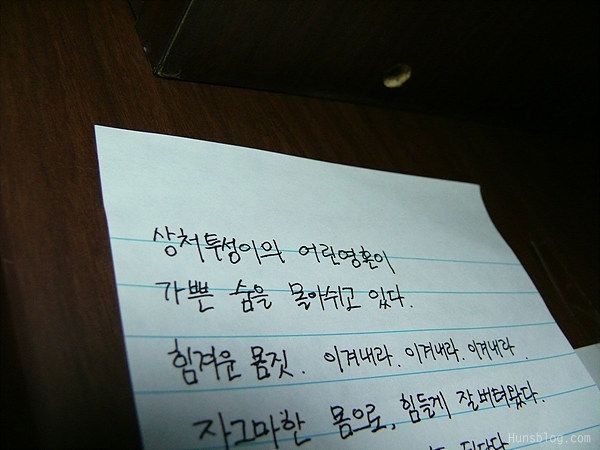 상처투성이의 어린영혼이
가쁜 숨을 몰아쉬고 있다.
힘겨운 몸짓. 이겨내라. 이겨내라. 이겨내라.
자그마한 몸으로, 힘들게 잘 버텨왔다.
Hunsblog.com